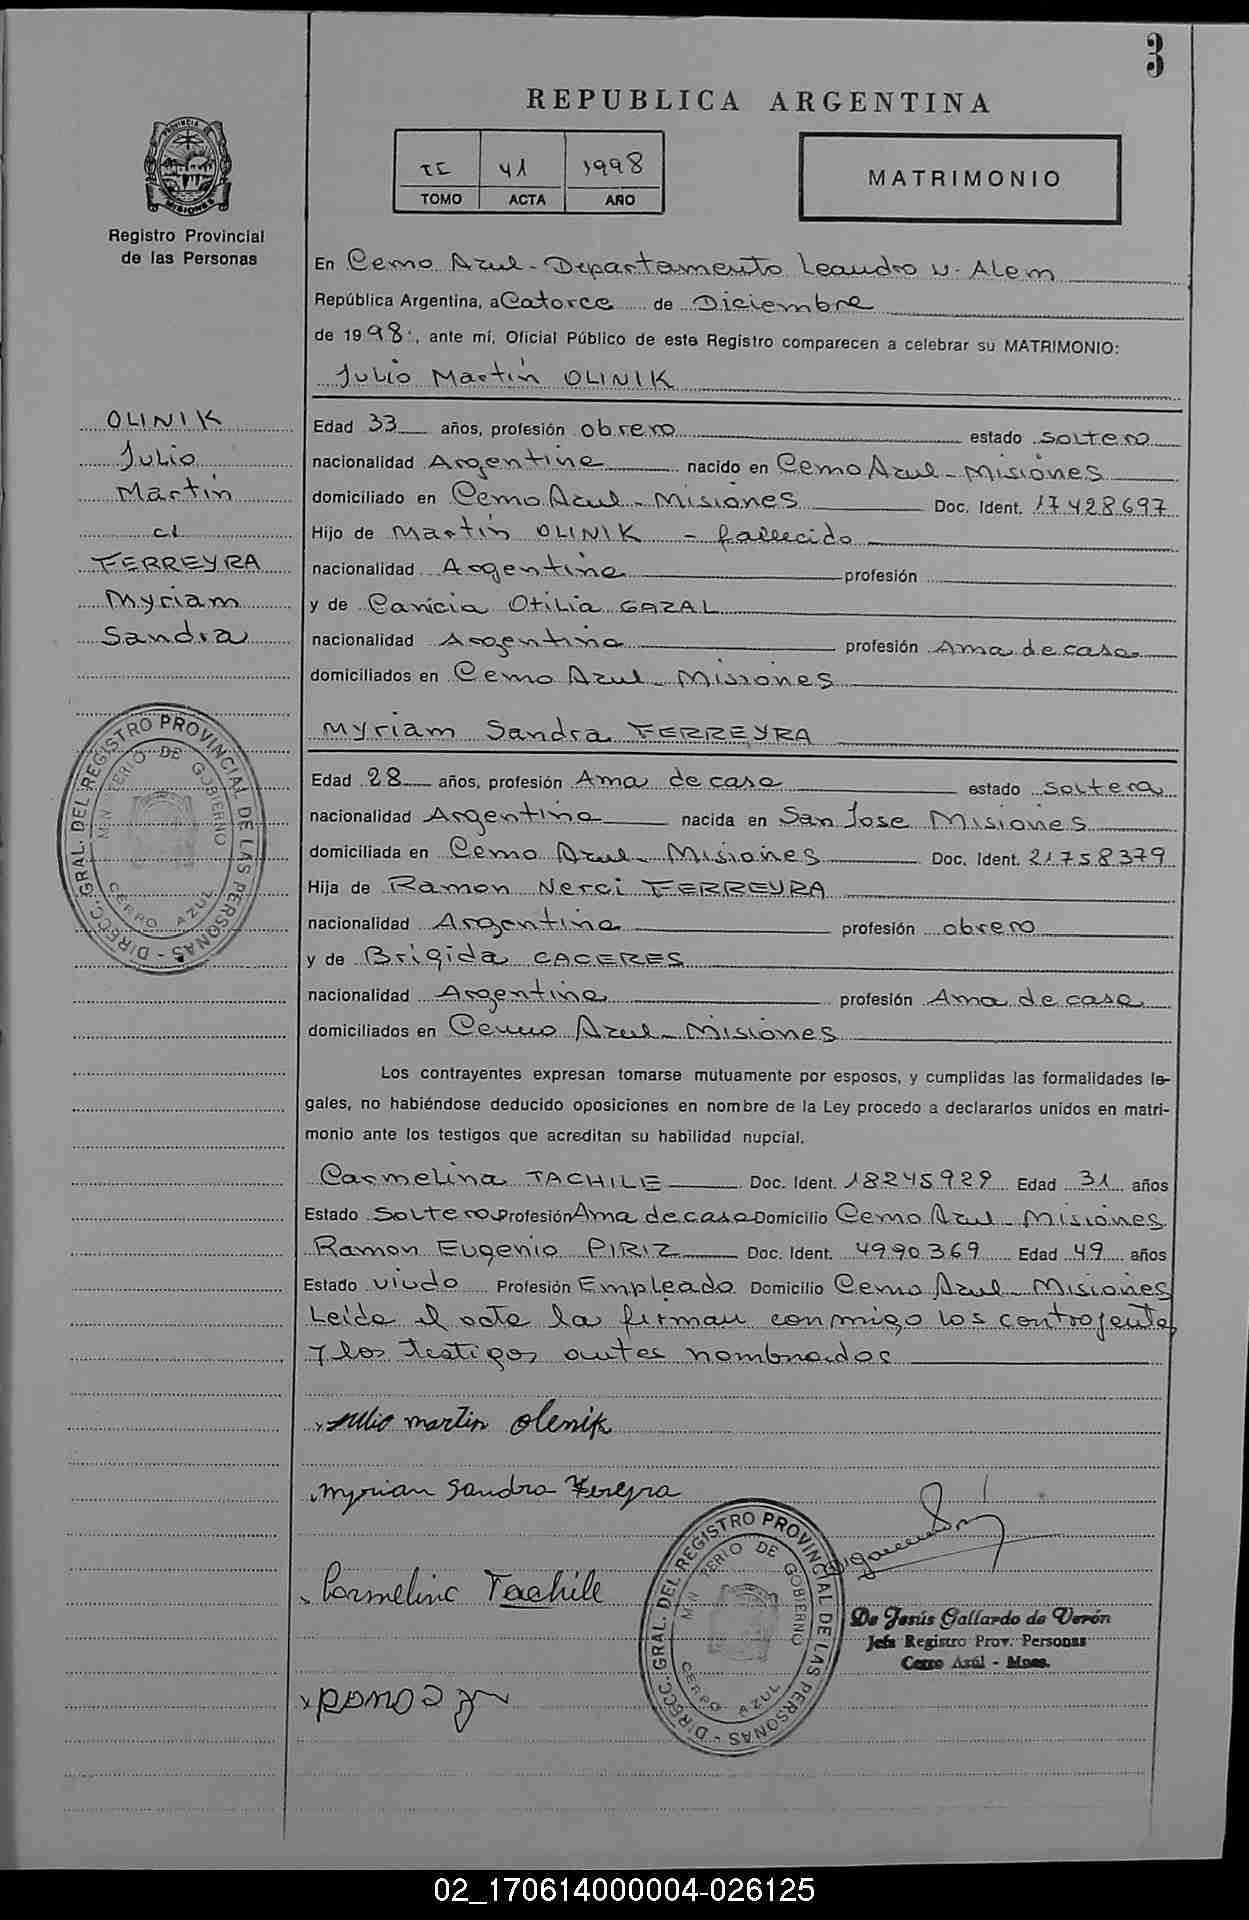 3
REPUBLICA ARGENTINA
PROVINCIA DE
MISIONES
Registro Provincial
de las Personas
II 41 1998
TOMO ACTA AÑO
MATRIMONIO
En Cerro Azul - Departamento Leandro N. Alem
República Argentina, a Catorce de Diciembre
de 1998, ante mí, Oficial Público de este Registro comparecen a celebrar su MATRIMONIO:
Julio Martín OLINIK
OLINIK
Julio
Martín
c/
FERREYRA
Myriam
Sandra
Edad 33 años, profesión obrero estado soltero
nacionalidad Argentina nacido en Cerro Azul - Misiones
domiciliado en Cerro Azul - Misiones Doc. Ident. 17428697
Hijo de Martín OLINIK - fallecido
nacionalidad Argentina profesión
y de Otilia GAZAL
nacionalidad Argentina profesión Ama de casa
domiciliados en Cerro Azul - Misiones
Myriam Sandra FERREYRA
Edad 28 años, profesión Ama de casa estado soltera
nacionalidad Argentina nacida en San Jose Misiones
domiciliada en Cerro Azul - Misiones Doc. Ident. 21758379
Hija de Ramon Nerci FERREYRA
nacionalidad Argentina profesión obrero
y de Brigida CACERES
nacionalidad Argentina profesión Ama de casa
domiciliados en Cerro Azul - Misiones
Los contrayentes expresan tomarse mutuamente por esposos, y cumplidas las formalidades le-
gales, no habiéndose deducido oposiciones en nombre de la Ley procedo a declararlos unidos en matri-
monio ante los testigos que acreditan su habilidad nupcial.
Carmelina TACHILE Doc. Ident. 18245929 Edad 31 años
Estado Soltero Profesión Ama de casa Domicilio Cerro Azul - Misiones
Ramon Eugenio PIRIZ Doc. Ident. 4990369 Edad 49 años
Estado viudo Profesión Empleado Domicilio Cerro Azul - Misiones
Leída el acta la firman conmigo los contrayentes
y los testigos antes nombrados
Julio martin olenik
Myrian Sandra Fereyra
Carmelina Tachile
DIRECC. GRAL. DEL REGISTRO PROVINCIAL DE LAS PERSONAS
MINISTERIO DE GOBIERNO
CERRO AZUL
DIRECC. GRAL. DEL REGISTRO PROVINCIAL DE LAS PERSONAS
MINISTERIO DE GOBIERNO
CERRO AZUL
De Jesús Gallardo de Verón
Jefa Registro Prov. Personas
Cerro Azúl - Mnes.
02_170614000004-026125